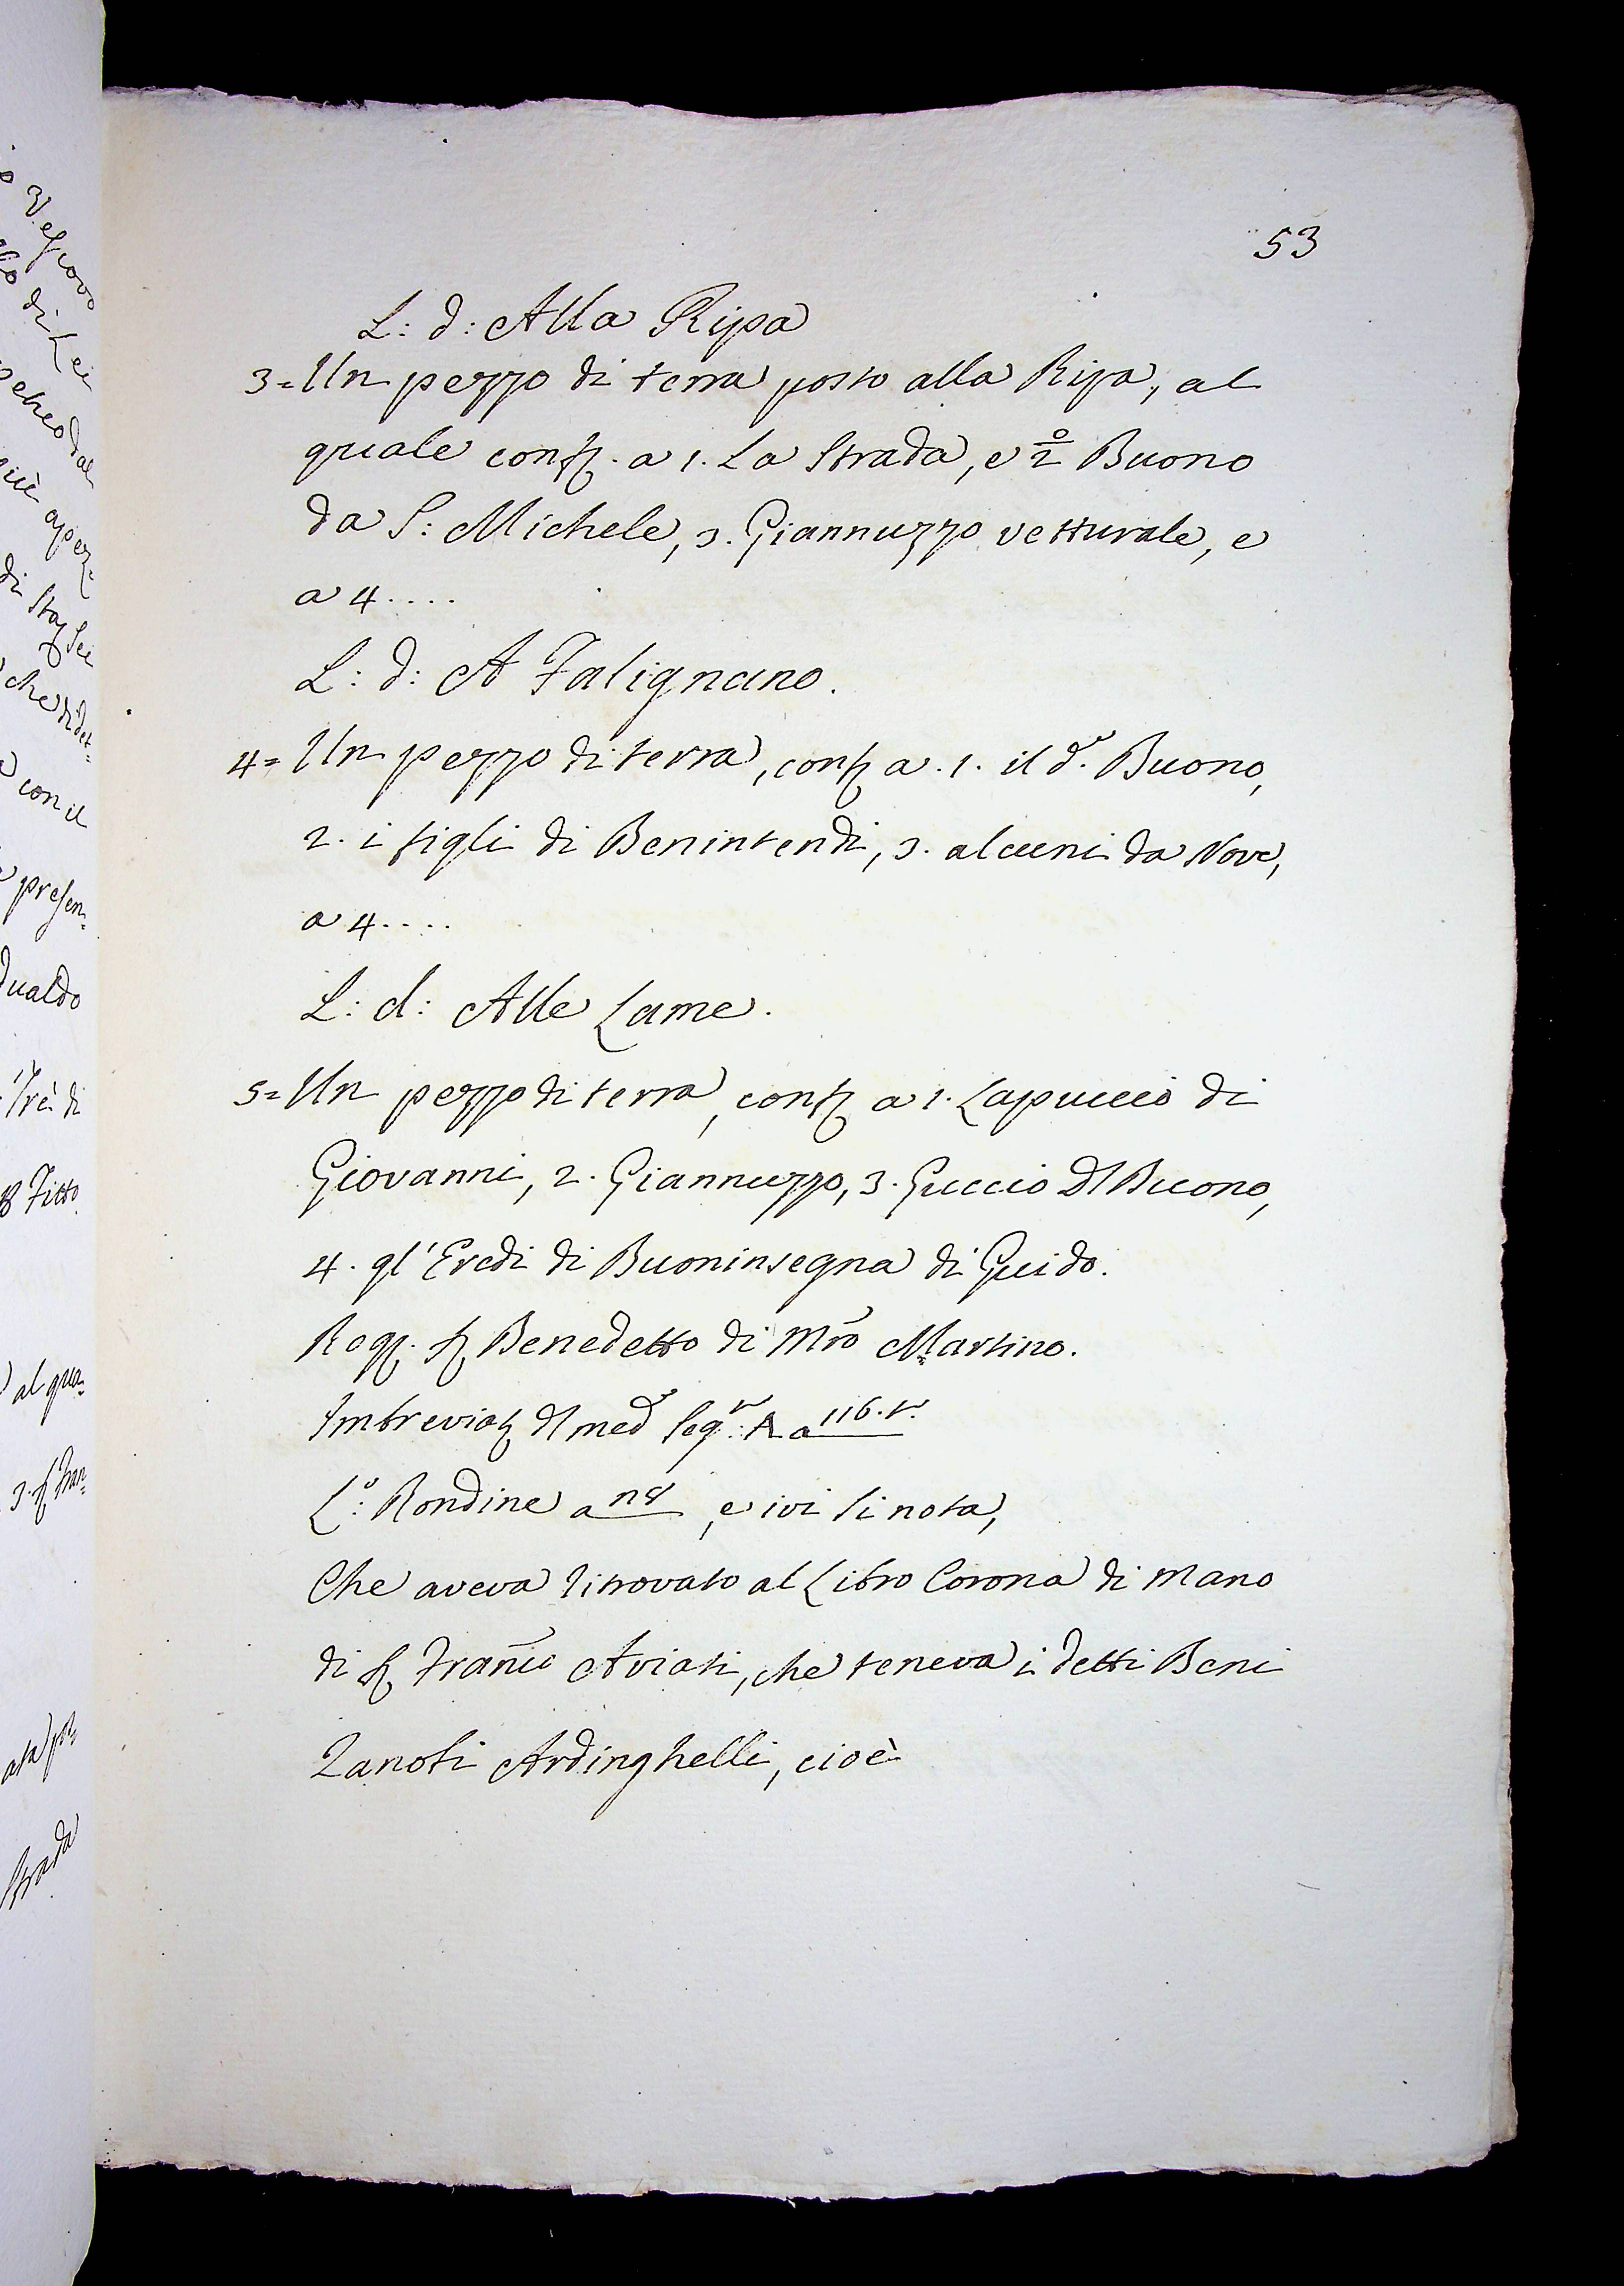 53
L: d: Alla Ripa
3= Un pezzo di terra posto alla Ripa, al
quale conf. a 1. La Strada, e 2º Buono
da S: Michele, 3. Giannuzzo vetturale, e
a 4....
L: d: A Falignano.
4= Un pezzo di terra, conf a. 1. il d.º Buono,
2. i figli di Benintendi, 3. alcuni da Nove,
a 4....
L: d: Alle Lame.
5= Un pezzo di terra, conf a 1. Lapuccio di
Giovanni, 2. Giannuzzo, 3. Guccio Dl Buono,
4. gl' Eredi di Buoninsegna di Guido.
Rog. S Benedetto di Mrō Martino.
Imbreviat dl med Seg.º: A a 116.t.
L.º: Rondine a n8, e ivi si nota,
Che aveva ritrovato al Libro Corona di mano
di S Franc̄ Aviati, che teneva i detti Beni
Zanoti Ardinghelli, cioè
Vescovo
di Lei
dal
di Stag Sei
che
con il
presen=
dualdo
Trè di
Fitto
al qua=
3. S Fran=
Strada